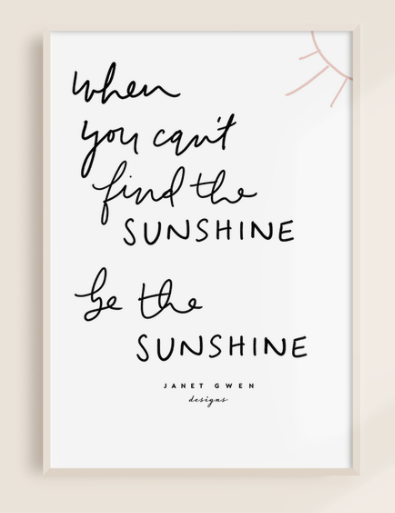 when
you can't
find the
SUNSHINE
be the
SUNSHINE
JANET GWEN
designs